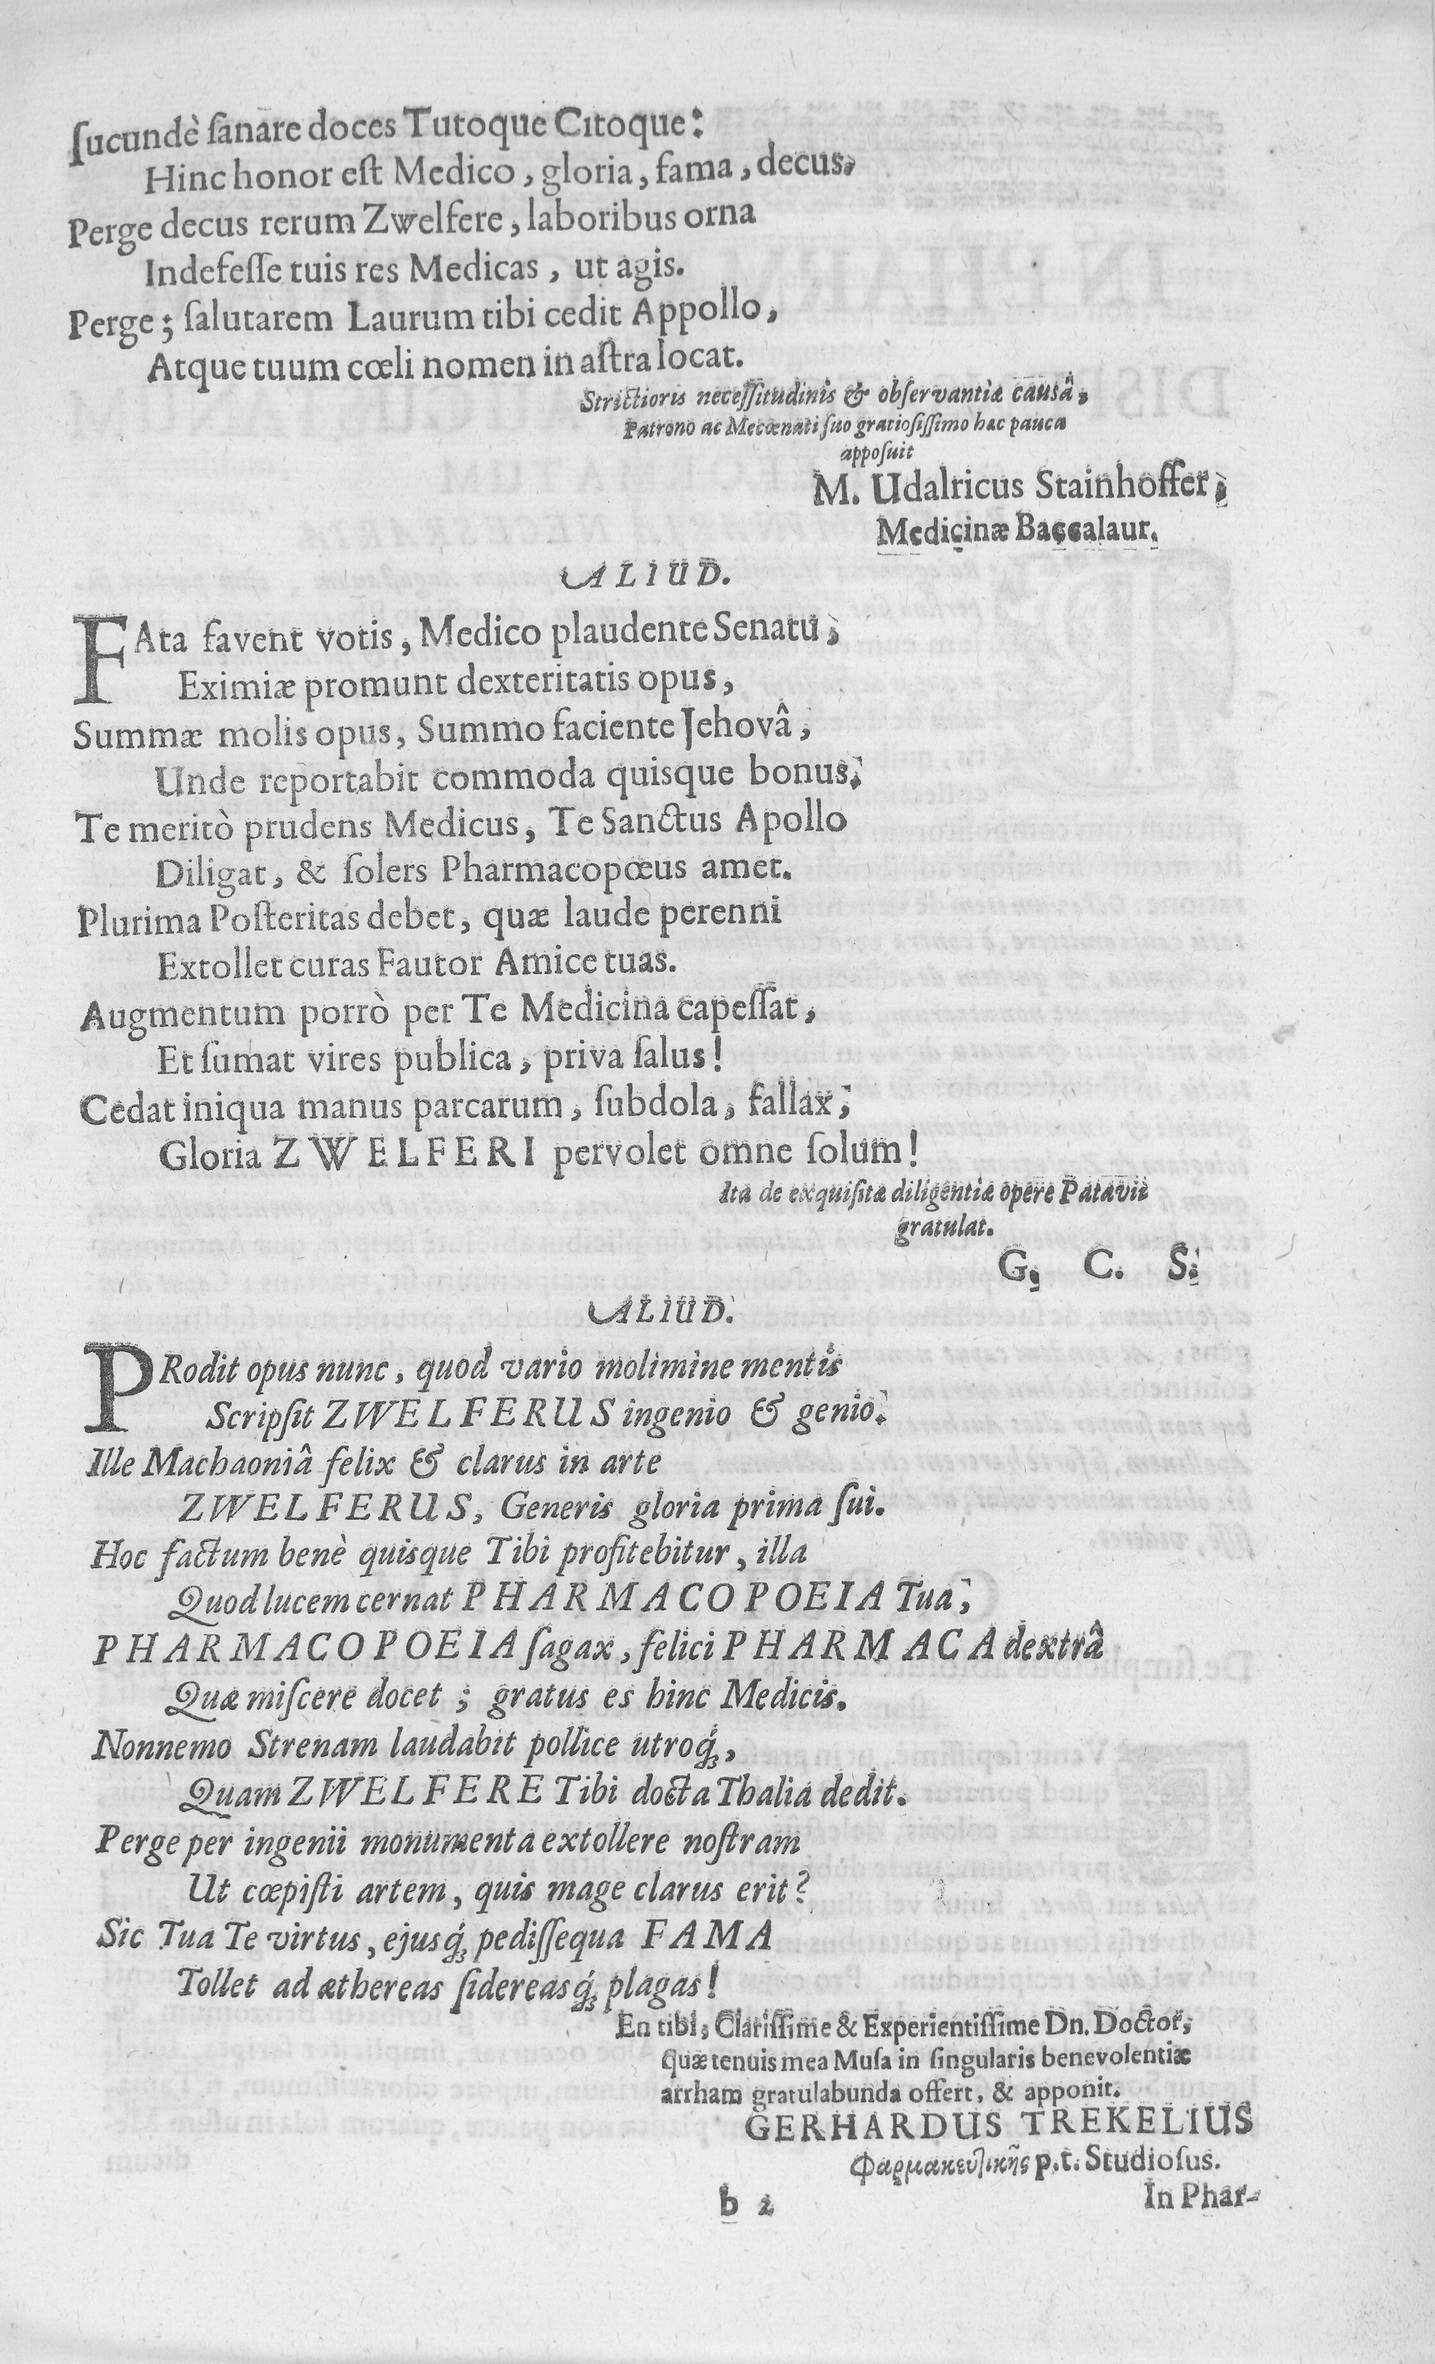 ſucundè ſanare doces Tutoque Citoque:
Hinc honor eſt Medico, gloria, fama, decus,
Perge decus rerum Zwelfere, laboribus orna
Indefeſſe tuis res Medicas, ut agis.
Perge; ſalutarem Laurum tibi cedit Appollo,
Atque tuum cœli nomen in aſtra locat.
Strictioris neceſſitudinis & obſervantiæ causâ,
Patrono ac Mecœnati ſuo gratioſiſſimo hac pauca
appoſuit
M. Udalricus Stainhoffer,
Medicinæ Baccalaur.
ALIUD.
FAta favent votis, Medico plaudente Senatu,
Eximiæ promunt dexteritatis opus,
Summæ molis opus, Summo faciente Jehovâ,
Unde reportabit commoda quisque bonus.
Te meritò prudens Medicus, Te Sanctus Apollo
Diligat, & ſolers Pharmacopœus amet.
Plurima Poſteritas debet, quæ laude perenni
Extollet curas Fautor Amice tuas.
Augmentum porrò per Te Medicina capeſſat,
Et ſumat vires publica, priva ſalus!
Cedat iniqua manus parcarum, ſubdola, fallax,
Gloria ZWELFERI pervolet omne ſolum!
Ita de exquiſitæ diligentiæ opere Patavii
gratulat.
G. C. S.
ALIUD.
PRodit opus nunc, quod vario molimine mentis
Scripſit ZWELFERUS ingenio & genio.
Ille Machaoniâ felix & clarus in arte
ZWELFERUS, Generis gloria prima ſui.
Hoc factum benè quisque Tibi profitebitur, illa
Quod lucem cernat PHARMACOPOEIA Tua,
PHARMACOPOEIA ſagax, felici PHARMACA dextrâ
Quæ miſcere docet; gratus es hinc Medicis.
Nonnemo Strenam laudabit pollice utroq́;,
Quam ZWELFERE Tibi docta Thalia dedit.
Perge per ingenii monumenta extollere noſtram
Ut cœpiſti artem, quis mage clarus erit?
Sic Tua Te virtus, ejusq́; pediſſequa FAMA
Tollet ad æthereas ſidereasq́; plagas!
En tibi, Clariſſime & Experientiſſime Dn. Doctor,
quæ tenuis mea Muſa in ſingularis benevolentiæ
arrham gratulabunda offert, & apponit.
GERHARDUS TREKELIUS
Φαρμακευτικῆς p.t. Studioſus.
b 2
In Phar-